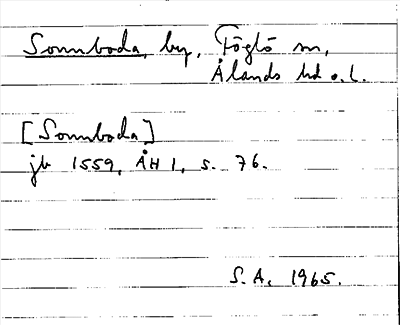 Sonnboda, by, Föglö sn,
Ålands hd o. l.
[Sonnboda]
jb 1559, ÅH 1, s. 76.
S. A. 1965.